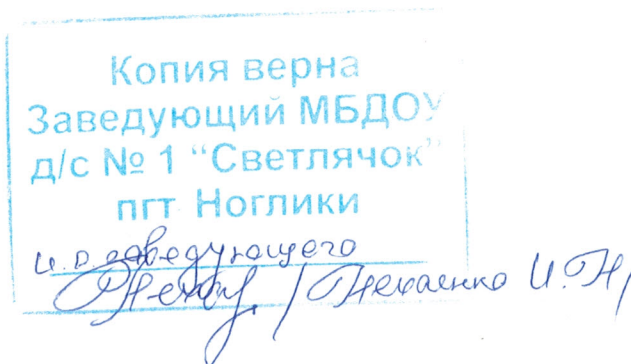 Копия верна
Заведующий МБДОУ
д/с № 1 “Светлячок”
пгт Ноглики
и.о заведующего
И.Н